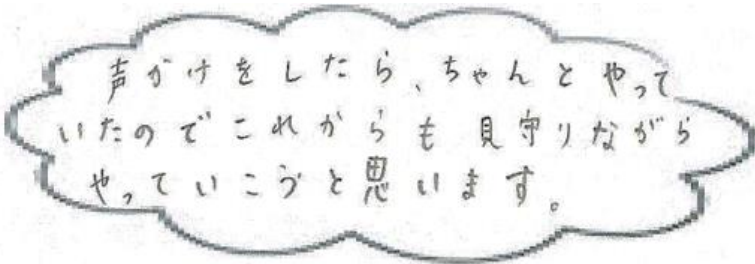 声がけをしたら、ちゃんとやって
いたのでこれからも見守りながら
やっていこうと思います。